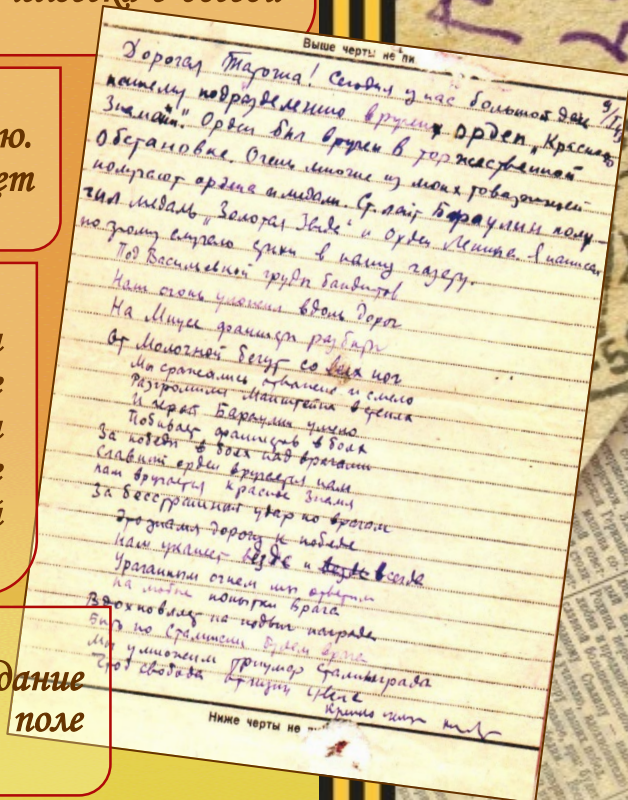 Выше черты не пи
Дорогая Тагоша! Сегодня у нас большой день
нашему подразделению вручили орден „Красное
Знамя“. Орден был вручен в торжественной
Обстановке. Очень многие из моих товарищей
получают ордена и медали. Ст. лейт Бараулин полу-
чил медаль „Золотая Звезда“ и Орден Ленина. Я написал
по этому случаю стихи в нашу газету.
Под Васильевкой груды бандитов
Наш огонь уложил вдоль дорог
На Миусе фашисты разбиты
От Молочной бегут со всех ног
Мы сражались отважно и смело
Разгромили Манштейна в степях
И герой Бараулин умело
Побивает фашистов в боях
За победы в боях над врагами
Славный орден вручается нам
нам вручается красное Знамя
За бесстрашный удар по врагам
Это знамя дорогу к победе
Нам укажет везде и всегда
Ураганным огнем мы ответим
на любые попытки врага
Вдохновляет на подвиг награда
по Сталински будем врага
Мы умножим триумф Сталинграда
свобода
Крепко жму
Ниже черты не
ю.
ет
а
е
и
е
й
дание
поле